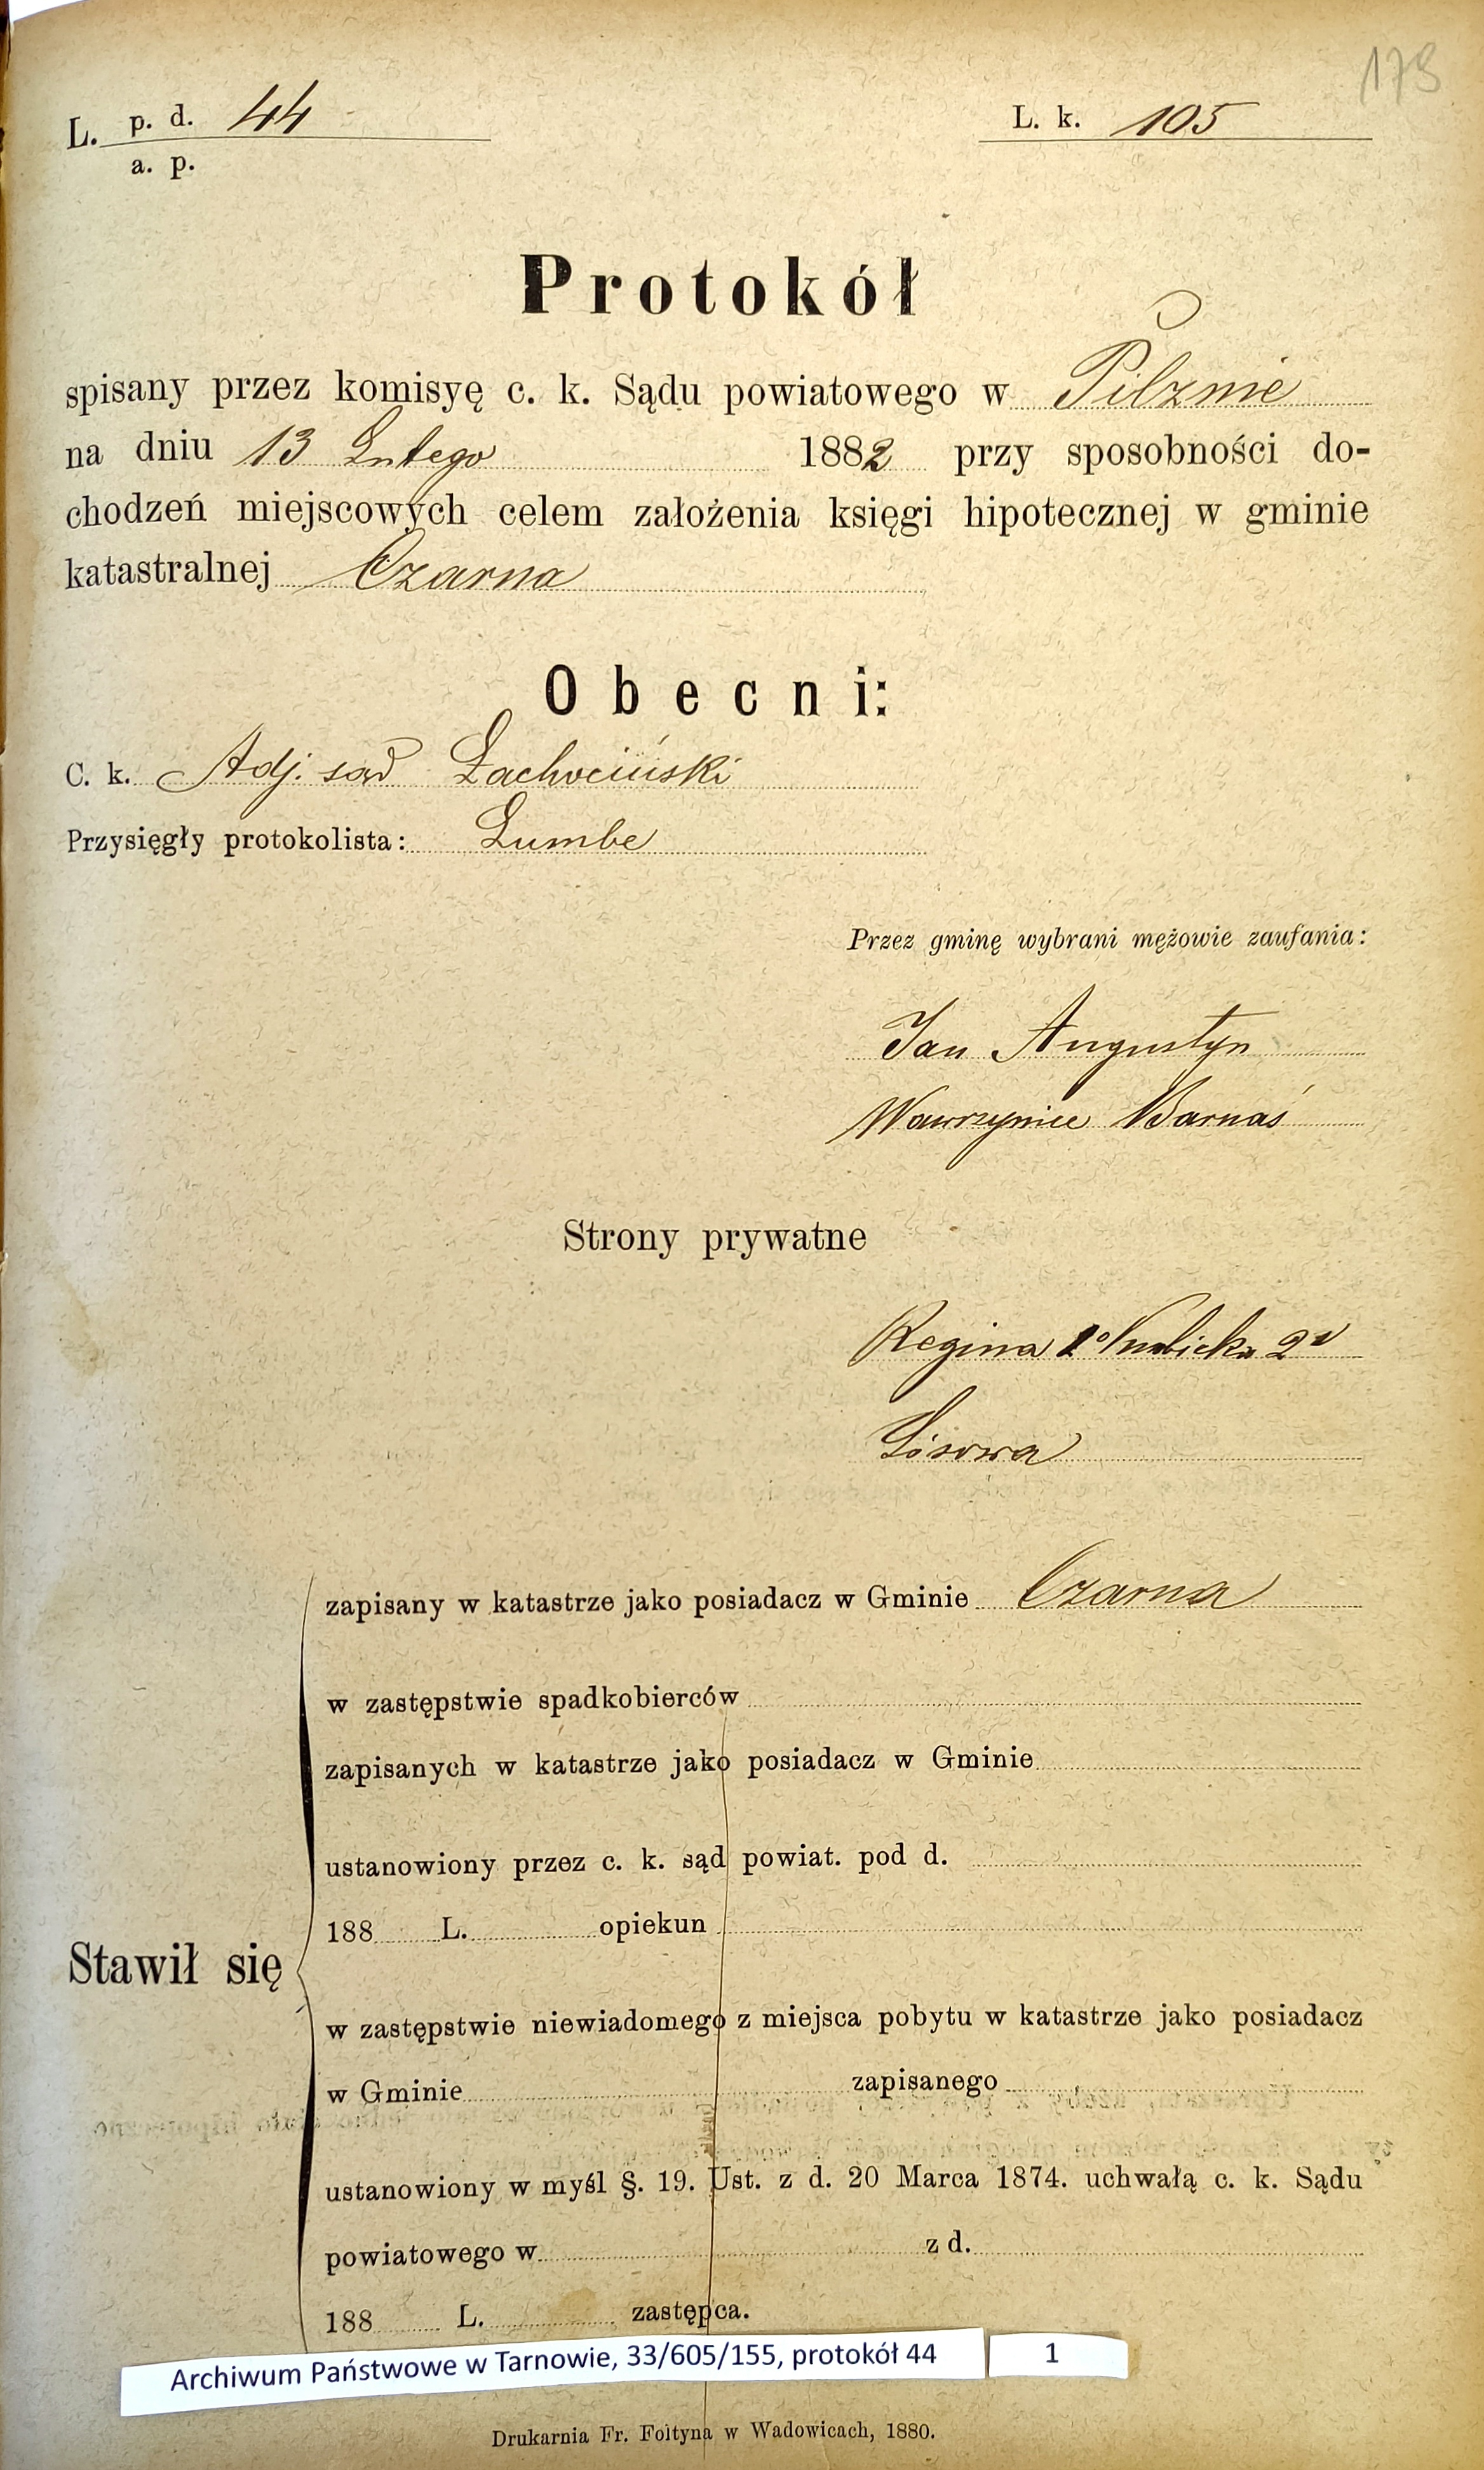 178
L. p. d. 44
a. p.
L. k. 105
Protokół
spisany przez komisyę c. k. Sądu powiatowego w Pilznie
na dniu 13 Lutego 1882 przy sposobności do-
chodzeń miejscowych celem założenia księgi hipotecznej w gminie
katastralnej Czarna
Obecni:
C. k. Adj. sąd Łachociński
Przysięgły protokolista: Lumbe
Przez gminę wybrani mężowie zaufania:
Jan Augustyn
Wawrzyniec Barnaś
Strony prywatne
Regina 1º 2º
Lisowa
zapisany w katastrze jako posiadacz w Gminie Czarna
w zastępstwie spadkobierców
zapisanych w katastrze jako posiadacz w Gminie
ustanowiony przez c. k. sąd powiat. pod d.
188 L. opiekun
Stawił się
w zastępstwie niewiadomego z miejsca pobytu w katastrze jako posiadacz
w Gminie zapisanego
ustanowiony w myśl §. 19. Ust. z d. 20 Marca 1874. uchwałą c. k. Sądu
powiatowego w z d.
188 L. zastępca.
Archiwum Państwowe w Tarnowie, 33/605/155, protokół 44 1
Drukarnia Fr. Foltyna w Wadowicach, 1880.